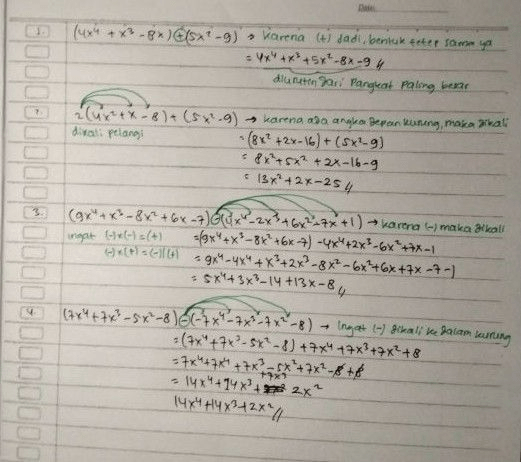 Date:
1. (4x⁴ + x³ - 8x) + (5x² - 9) → karena (+) jadi, bentuk tetep sama ya
= 4x⁴ + x³ + 5x² - 8x - 9
diurutin dari pangkat paling besar
2. 2(4x² + x - 8) + (5x² - 9) → karena ada angka depan kurung, maka dikali
dikali pelangi
= (8x² + 2x - 16) + (5x² - 9)
= 8x² + 5x² + 2x - 16 - 9
= 13x² + 2x - 25
3. (9x⁴ + x³ - 8x² + 6x - 7) - (4x⁴ - 2x³ + 6x² - 7x + 1) → karena (-) maka dikali
ingat (-) x (-) = (+) = (9x⁴ + x³ - 8x² + 6x - 7) - 4x⁴ + 2x³ - 6x² + 7x - 1
(-) x (+) = (-) = 9x⁴ - 4x⁴ + x³ + 2x³ - 8x² - 6x² + 6x + 7x - 7 - 1
= 5x⁴ + 3x³ - 14 + 13x - 8
4. (7x⁴ + 7x³ - 5x² - 8) - (-7x⁴ - 7x³ - 7x² - 8) → ingat (-) dikali ke dalam kurung
= (7x⁴ + 7x³ - 5x² - 8) + 7x⁴ + 7x³ + 7x² + 8
= 7x⁴ + 7x⁴ + 7x³ - 5x² + 7x² - 8 + 8
+7x³
= 14x⁴ + 14x³ + 2x²
14x⁴ + 14x³ + 2x²